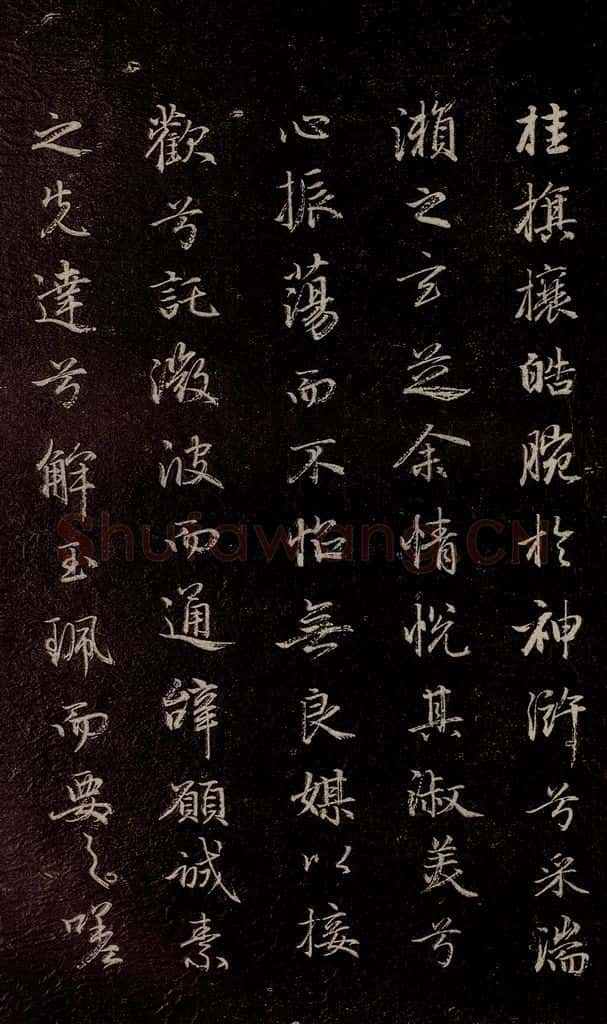 桂旗攘皓腕於神滸兮采湍
瀨之玄芝余情悅其淑美兮
心振蕩而不怡無良媒以接
歡兮託微波而通辭願誠素
之先達兮解玉珮而要之嗟
Shufawang.CN